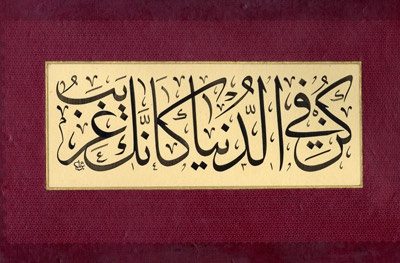 كُنْ فِي الدُّنْيَا كَأَنَّكَ غَرِيبٌ